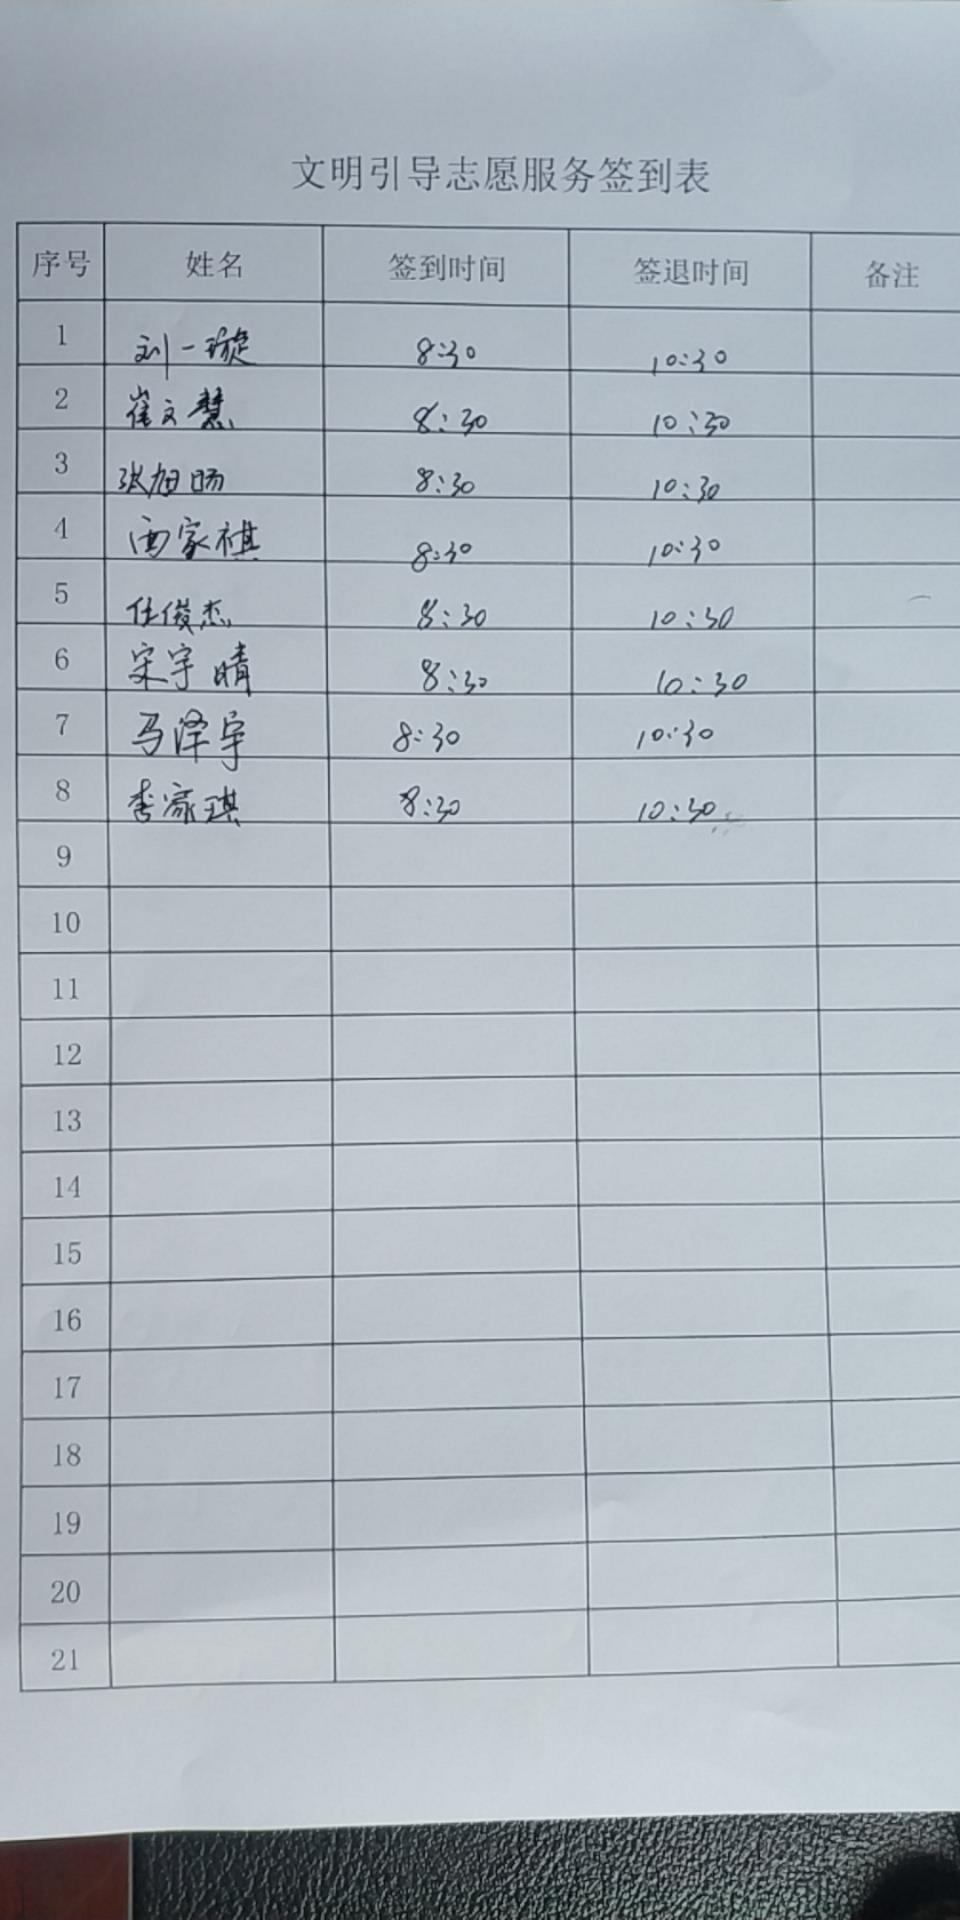 文明引导志愿服务签到表
序号 姓名 签到时间 签退时间 备注
1 刘一璇 8:30 10:30
2 崔文慧 8:30 10:30
3 张旭旸 8:30 10:30
4 家祺 8:30 10:30
5 任俊杰 8:30 10:30
6 宋宇晴 8:30 10:30
7 马泽宇 8:30 10:30
8 李家琪 8:30 10:30
9
10
11
12
13
14
15
16
17
18
19
20
21